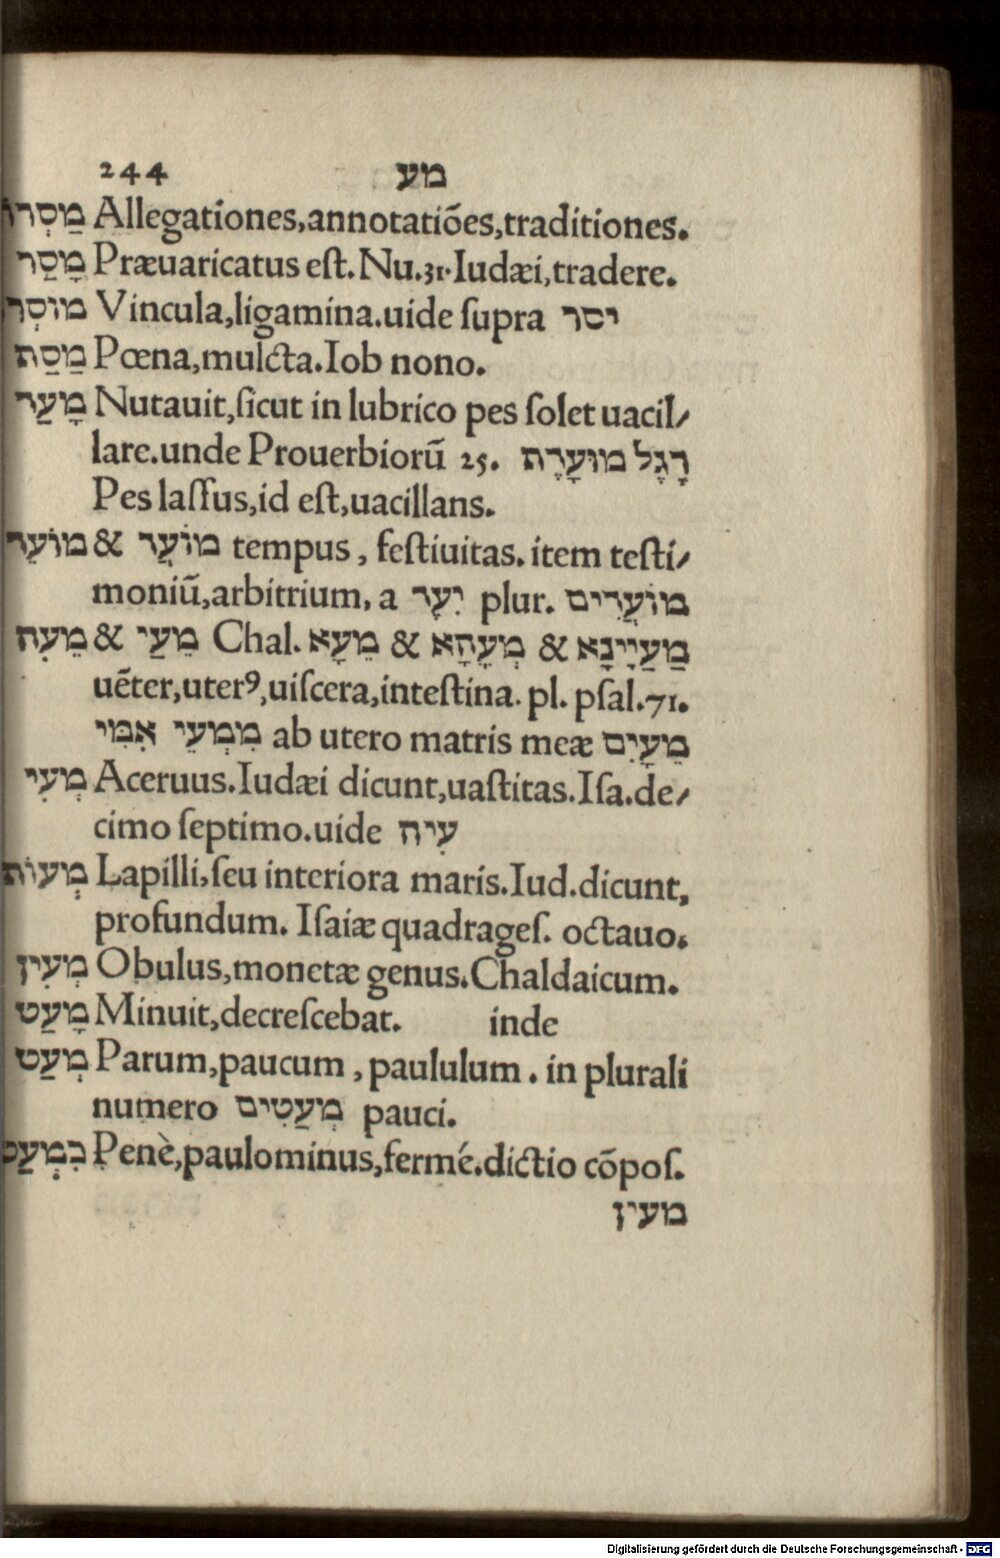 244 מע
מַסְרוֹ Allegationes,annotatiões,traditiones.
מָסַר Præuaricatus eſt. Nu.31. Iudæi,tradere.
מוֹסְר Vincula,ligamina.uide ſupra יסר
מַסַּת Pœna,mulcta. Iob nono.
מָעַד Nutauit,ſicut in lubrico pes ſolet uacil/
lare.unde Prouerbiorũ 25. רֶגֶל מוּעָדֶת
Pes laſſus,id eſt,uacillans.
מוֹעֵד & מוֹעֲד tempus, feſtiuitas. item teſti/
moniũ,arbitrium, a יָעַד plur. מוֹעֲדִים
מֵעֶה & מֵעַי Chal. מֵעָא & מְעָהָא & מַעַיְינָא
uẽter,uterꝰ,uiſcera,inteſtina. pl. pſal.71.
מֵעָיִם ab utero matris meæ מִמְּעֵי אִמִּי
מְעִי Aceruus. Iudæi dicunt,uaſtitas. Iſa.de/
cimo ſeptimo.uide עיה
מְעוֹת Lapilli,ſeu interiora maris. Iud.dicunt,
profundum. Iſaiæ quadrageſ. octauo.
מְעִין Obulus,monetæ genus. Chaldaicum.
מָעַט Minuit,decreſcebat. inde
מְעַט Parum,paucum, paululum. in plurali
numero מְעַטִּים pauci.
כִּמְעַט Penè,paulominus,fermé.dictio cõpoſ.
מעין
Digitalisierung gefördert durch die Deutsche Forschungsgemeinschaft - DFG